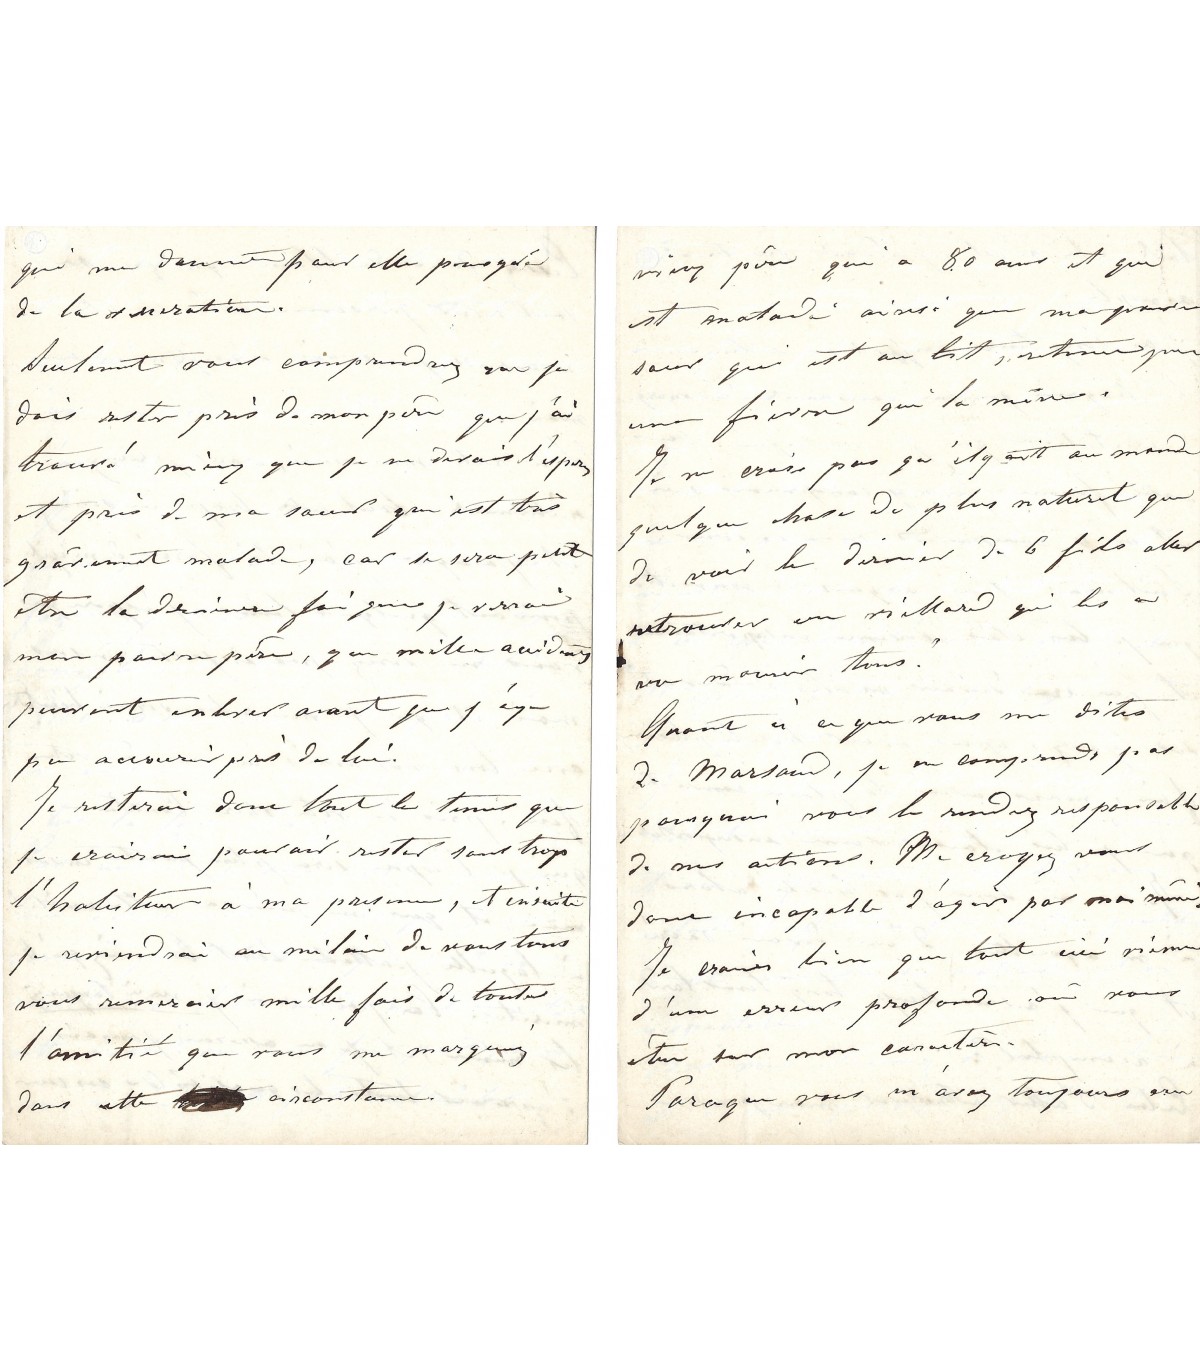 qui me donne pour elle presque
de la vénération.
Seulement vous comprendrez que je
dois rester près de mon père que j'ai
trouvé mieux que je ne devais l'espérer
et près de ma sœur qui est très
gravement malade, car ce sera peut
être la dernière foi que je verrai
mon pauvre père, que mille accidents
peuvent enlever avant que j'aye
pu accourir près de lui.
Je resterai donc tout le tems que
je croirai pouvoir rester sans trop
l'habituer à ma présence, et ensuite
je reviendrai au milieu de vous tous
vous remercier mille fois de toute
l'amitié que vous me marquez
dans cette circonstance.
vieux père qui a 80 ans et qui
est malade ainsi que ma pauvre
sœur qui est au lit, retenue par
une fièvre qui la mine.
Je ne crois pas qu'il y ait au monde
quelque chose de plus naturel que
de voir le dernier de 6 fils aller
retrouver un vieillard qui les a
vu mourir tous.
Quant à ce que vous me dites
de Marsaud, je ne comprends pas
pourquoi vous le rendez responsable
de mes actions. Me croyez vous
donc incapable d'agir par moi même,
Je crains bien que tout ceci vienne
d'une erreur profonde où vous
êtes sur mon caractère.
Parceque vous m'avez toujours cru